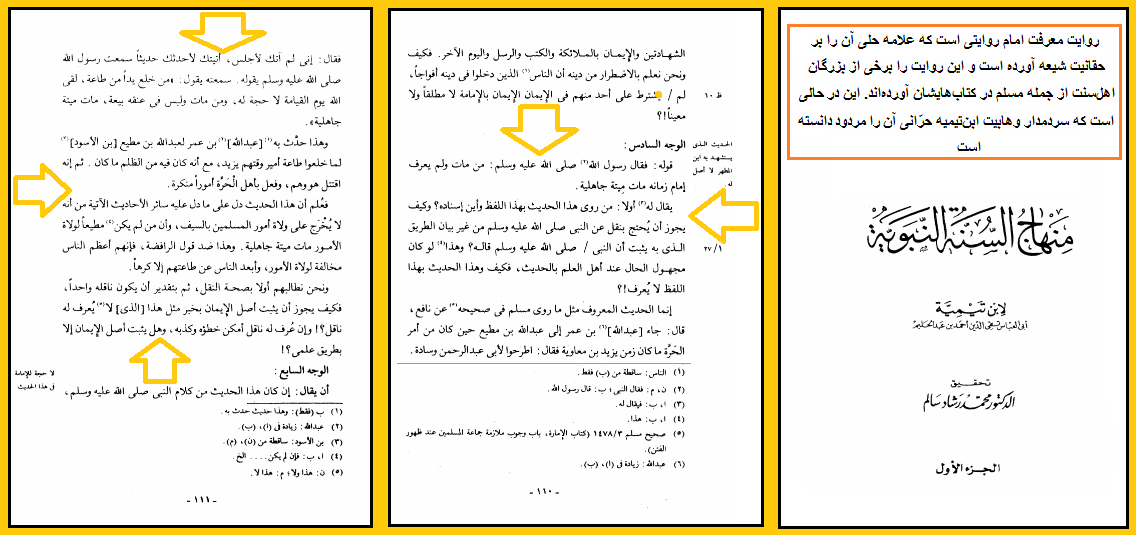 روایت معرفت امام روایتی است که علامه حلی آن را بر
حقانیت شیعه آورده است و این روایت را برخی از بزرگان
اهل‌سنت از جمله مسلم در کتاب‌هایشان آورده‌اند. این در حالی
است که سردمدار وهابیت ابن‌تیمیه حرّانی آن را مردود دانسته
است
منهاج السنة النبوية
لابن تيمية
أبي العباس تقي الدين أحمد بن عبد الحليم
تحقيق
الدكتور محمد رشاد سالم
الجزء الأول
الشهادتين والإيمان بالملائكة والكتب والرسل واليوم الآخر. فكيف
ونحن نعلم بالاضطرار من دينه أن الناس(١) الذين دخلوا فى دينه أفواجاً،
لم / يشترط على أحد منهم فى الإيمان الإيمان بالإمامة لا مطلقاً ولا
ظ ١٠
معينا؟!
الوجه السادس:
الحديث الذى
يستشهد به ابن
المطهر لا أصل
له
قوله: فقال رسول الله(٢) صلى الله عليه وسلم: من مات ولم يعرف
إمام زمانه مات مِيتة جاهلية.
يقال له(٣) أولا: من روى هذا الحديث بهذا اللفظ وأين إسناده؟ وكيف
يجوز أن يُحتج بنقل عن النبى صلى الله عليه وسلم من غير بيان الطريق
الذى به يثبت أن النبى / صلى الله عليه وسلم قاله؟ وهذا(٤) لو كان
٢٧/١
مجهول الحال عند أهل العلم بالحديث، فكيف وهذا الحديث بهذا
اللفظ لا يُعرف؟!
إنما الحديث المعروف مثل ما روى مسلم فى صحيحه(٥) عن نافع،
قال: جاء [عبدالله](٦) بن عمر إلى عبدالله بن مطيع حين كان من أمر
الحَرَّة ما كان زمن يزيد بن معاوية فقال: اطرحوا لأبى عبدالرحمن وسادة.
(١) الناس: ساقطة من (ب) فقط.
(٢) ن، م: فقال النبى؛ ب: قال رسول الله.
(٣) ا، ب: فيقال له.
(٤) ا، ب: هذا.
(٥) صحيح مسلم ١٤٧٨/٣ (كتاب الإمارة، باب وجوب ملازمة جماعة المسلمين عند ظهور
الفتن).
(٦) عبدالله: زيادة فى (أ)، (ب).
- ١١٠ -
فقال: إنى لم آتك لأجلس، أتيتك لأحدثك حديثاً سمعت رسول الله
صلى الله عليه وسلم يقوله. سمعته يقول: «من خلع يداً من طاعة، لقى
الله يوم القيامة لا حجة له، ومن مات وليس فى عنقه بيعة، مات ميتة
جاهلية».
وهذا حدَّث به(١) [عبدالله](٢) بن عمر لعبدالله بن مطيع [بن الأسود](٣)
لما خلعوا طاعة أمير وقتهم يزيد، مع أنه كان فيه من الظلم ما كان. ثم إنه
اقتتل هو وهم، وفعل بأهل الْحَرَّة أموراً منكرة.
فعُلم أن هذا الحديث دل على ما دل عليه سائر الأحاديث الآتية من أنه
لا يُخْرَج على ولاة أمور المسلمين بالسيف، وأن من لم يكن(٤) مطيعاً لولاة
الأمور مات ميتة جاهلية. وهذا ضد قول الرافضة، فإنهم أعظم الناس
مخالفة لولاة الأمور، وأبعد الناس عن طاعتهم إلا كرهاً.
ونحن نطالبهم أولا بصحة النقل، ثم بتقدير أن يكون ناقله واحداً،
فكيف يجوز أن يثبت أصل الإيمان بخبر مثل هذا [الذى] لا(٥) يُعرف له
ناقل؟! وإن عُرف له ناقل أمكن خطؤه وكذبه، وهل يثبت أصل الإيمان إلا
بطريق علمى؟!
الوجه السابع:
لا حجة للإمامية
فى هذا الحديث
أن يقال: إن كان هذا الحديث من كلام النبى صلى الله عليه وسلم،
(١) ب (فقط): وهذا حديث حدث به.
(٢) عبدالله: زيادة فى (أ)، (ب).
(٣) بن الأسود: ساقطة من (ن)، (م).
(٤) ا، ب: فإن لم يكن.... الخ.
(٥) ن: هذا ولا؛ م: هذا لا.
- ١١١ -